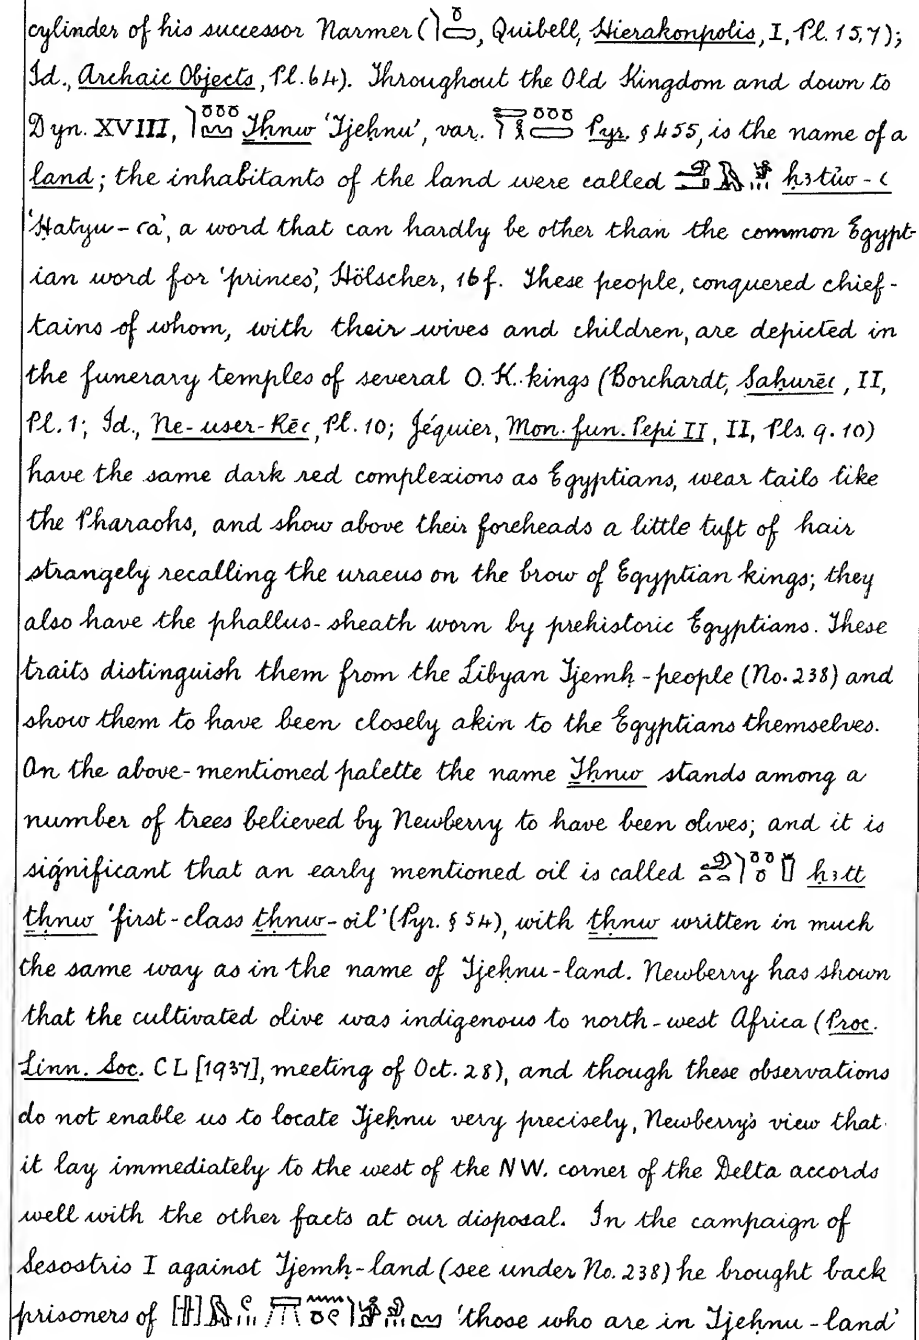 cylinder of his successor Narmer (𓌙𓏌𓈅, Quibell, Hierakonpolis, I, Pl. 15,7);
Id., Archaic Objects, Pl. 64). Throughout the Old Kingdom and down to
Dyn. XVIII, 𓌙𓏌𓏌𓏌𓈉 Ṯḥnw 'Tjeḥnu', var. Pyr. § 455, is the name of a
land; the inhabitants of the land were called ḥꜣtiw-ꜥ
'Ḥatyu-ꜥa', a word that can hardly be other than the common Egypt-
ian word for 'princes', Hölscher, 16 f. These people, conquered chief-
tains of whom, with their wives and children, are depicted in
the funerary temples of several O.K. kings (Borchardt, Saḥurēꜥ, II,
Pl. 1; Id., Ne-user-Rēꜥ, Pl. 10; Jéquier, Mon. fun. Pepi II, II, Pls. 9. 10)
have the same dark red complexions as Egyptians, wear tails like
the Pharaohs, and show above their foreheads a little tuft of hair
strangely recalling the uraeus on the brow of Egyptian kings; they
also have the phallus-sheath worn by prehistoric Egyptians. These
traits distinguish them from the Libyan Tjemḥ-people (No. 238) and
show them to have been closely akin to the Egyptians themselves.
On the above-mentioned palette the name Ṯḥnw stands among a
number of trees believed by Newberry to have been olives; and it is
significant that an early mentioned oil is called ḥꜣtt
ṯḥnw 'first-class ṯḥnw-oil' (Pyr. § 54), with ṯḥnw written in much
the same way as in the name of Tjeḥnu-land. Newberry has shown
that the cultivated olive was indigenous to north-west Africa (Proc.
Linn. Soc. CL [1937], meeting of Oct. 28), and though these observations
do not enable us to locate Tjeḥnu very precisely, Newberry's view that
it lay immediately to the west of the NW. corner of the Delta accords
well with the other facts at our disposal. In the campaign of
Sesostris I against Tjemḥ-land (see under No. 238) he brought back
prisoners of 'those who are in Tjeḥnu-land'